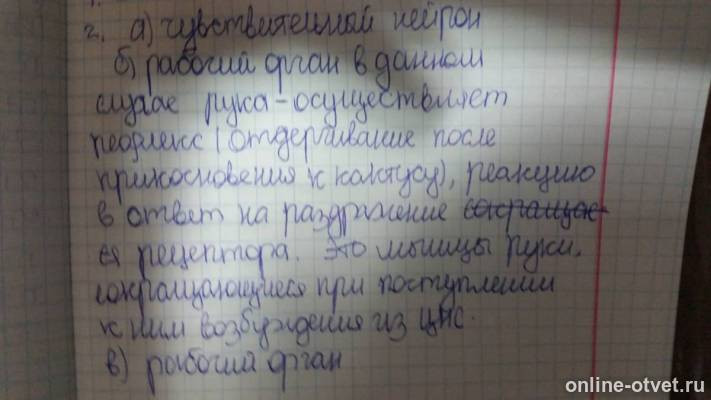 2. а) чувствительный нейрон
б) рабочий орган в данном
случае рука - осуществляет
рефлекс (отдергивание после
прикосновения к кактусу), реакцию
в ответ на раздражение сокращаю-
ся рецептора. Это мышцы руки,
сокращающиеся при поступлении
к ним возбуждения из ЦНС.
в) рабочий орган
online-otvet.ru